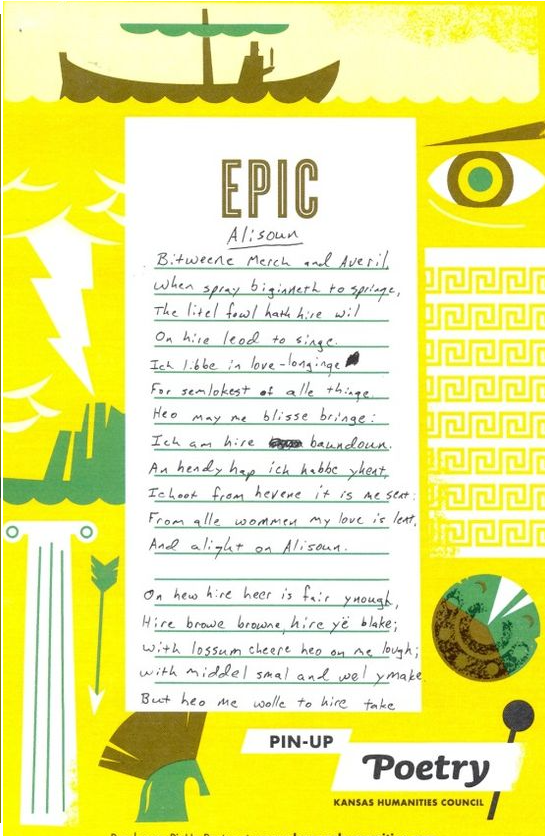 EPIC
Alisoun
Bitweene Merch and Averil,
When spray biginneth to springe,
The litel fowl hath hire wil
On hire leod to singe.
Ich libbe in love-longinge
For semlokest of alle thinge.
Heo may me blisse bringe:
Ich am hire baundoun.
An hendy hap ich habbe yhent,
Ichoot from hevene it is me sent:
From alle wommen my love is lent,
And alight on Alisoun.
On hew hire heer is fair ynough,
Hire browe browne, hire yë blake;
With lossum cheere heo on me lough;
With middel smal and wel ymake.
But heo me wolle to hire take
PIN-UP
Poetry
KANSAS HUMANITIES COUNCIL